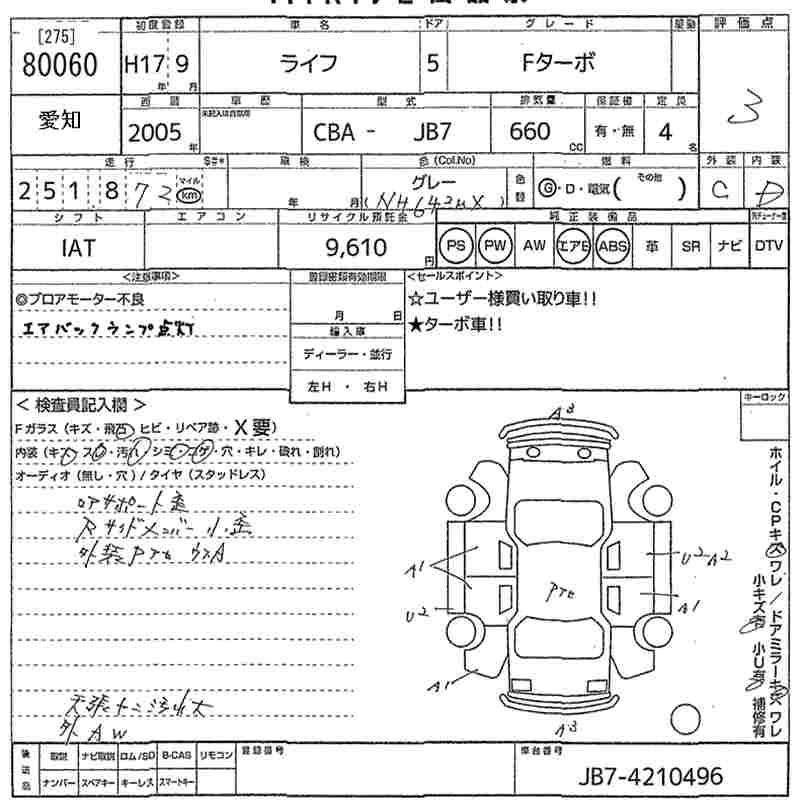 [275]
80060
初度登録
車名
ドア
グレード
評価点
H17年 9月
ライフ
5
Fターボ
3
愛知
西暦
車歴
型式
排気量
保証書
定員
2005年
CBA - JB7
660 CC
有・無
4名
走行
車検
色(Col.No)
色替
燃料
外装
内装
2 5 1 8 7 2 マイル km
年 月
グレー
G・D・電気( その他 )
C
D
シフト
エアコン
リサイクル預託金
純正装備品
IAT
9,610円
PS
PW
AW
エアB
ABS
革
SR
ナビ
DTV
<注意事項>
登録書類有効期限
<セールスポイント>
◎ブロアモーター不良
☆ユーザー様買い取り車!!
エアバックランプ点灯
月 日
★ターボ車!!
輸入車
ディーラー・並行
左H ・ 右H
< 検査員記入欄 >
キーロック
Fガラス (キズ・飛石 ヒビ・リペア跡・X要)
内装 (キズ・スレ・汚れ・シミ・コゲ・穴・キレ・破れ・割れ)
オーディオ (無し・穴) / タイヤ (スタッドレス)
コアサポート歪
Rサイドメンバー小歪
外装Pナセ ウスA
A3
A1
U2
A1
U2 A2
A1
A3
ホイル・CPキズ ワレ / ドアミラーキズ ワレ
小キズ有 小U有 補修有
外AW
後送品
取説
ナビ取説
ロム/SD
B-CAS
リモコン
登録番号
車台番号
ナンバー
スペアキー
キーレス
スマートキー
JB7-4210496